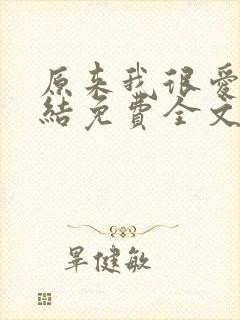 原来我很爱
結免費全文
畢健敏